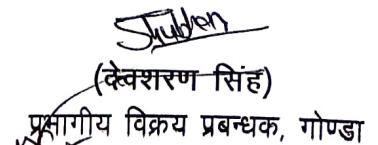 (देवशरण सिंह)
प्रभागीय विक्रय प्रबन्धक, गोण्डा